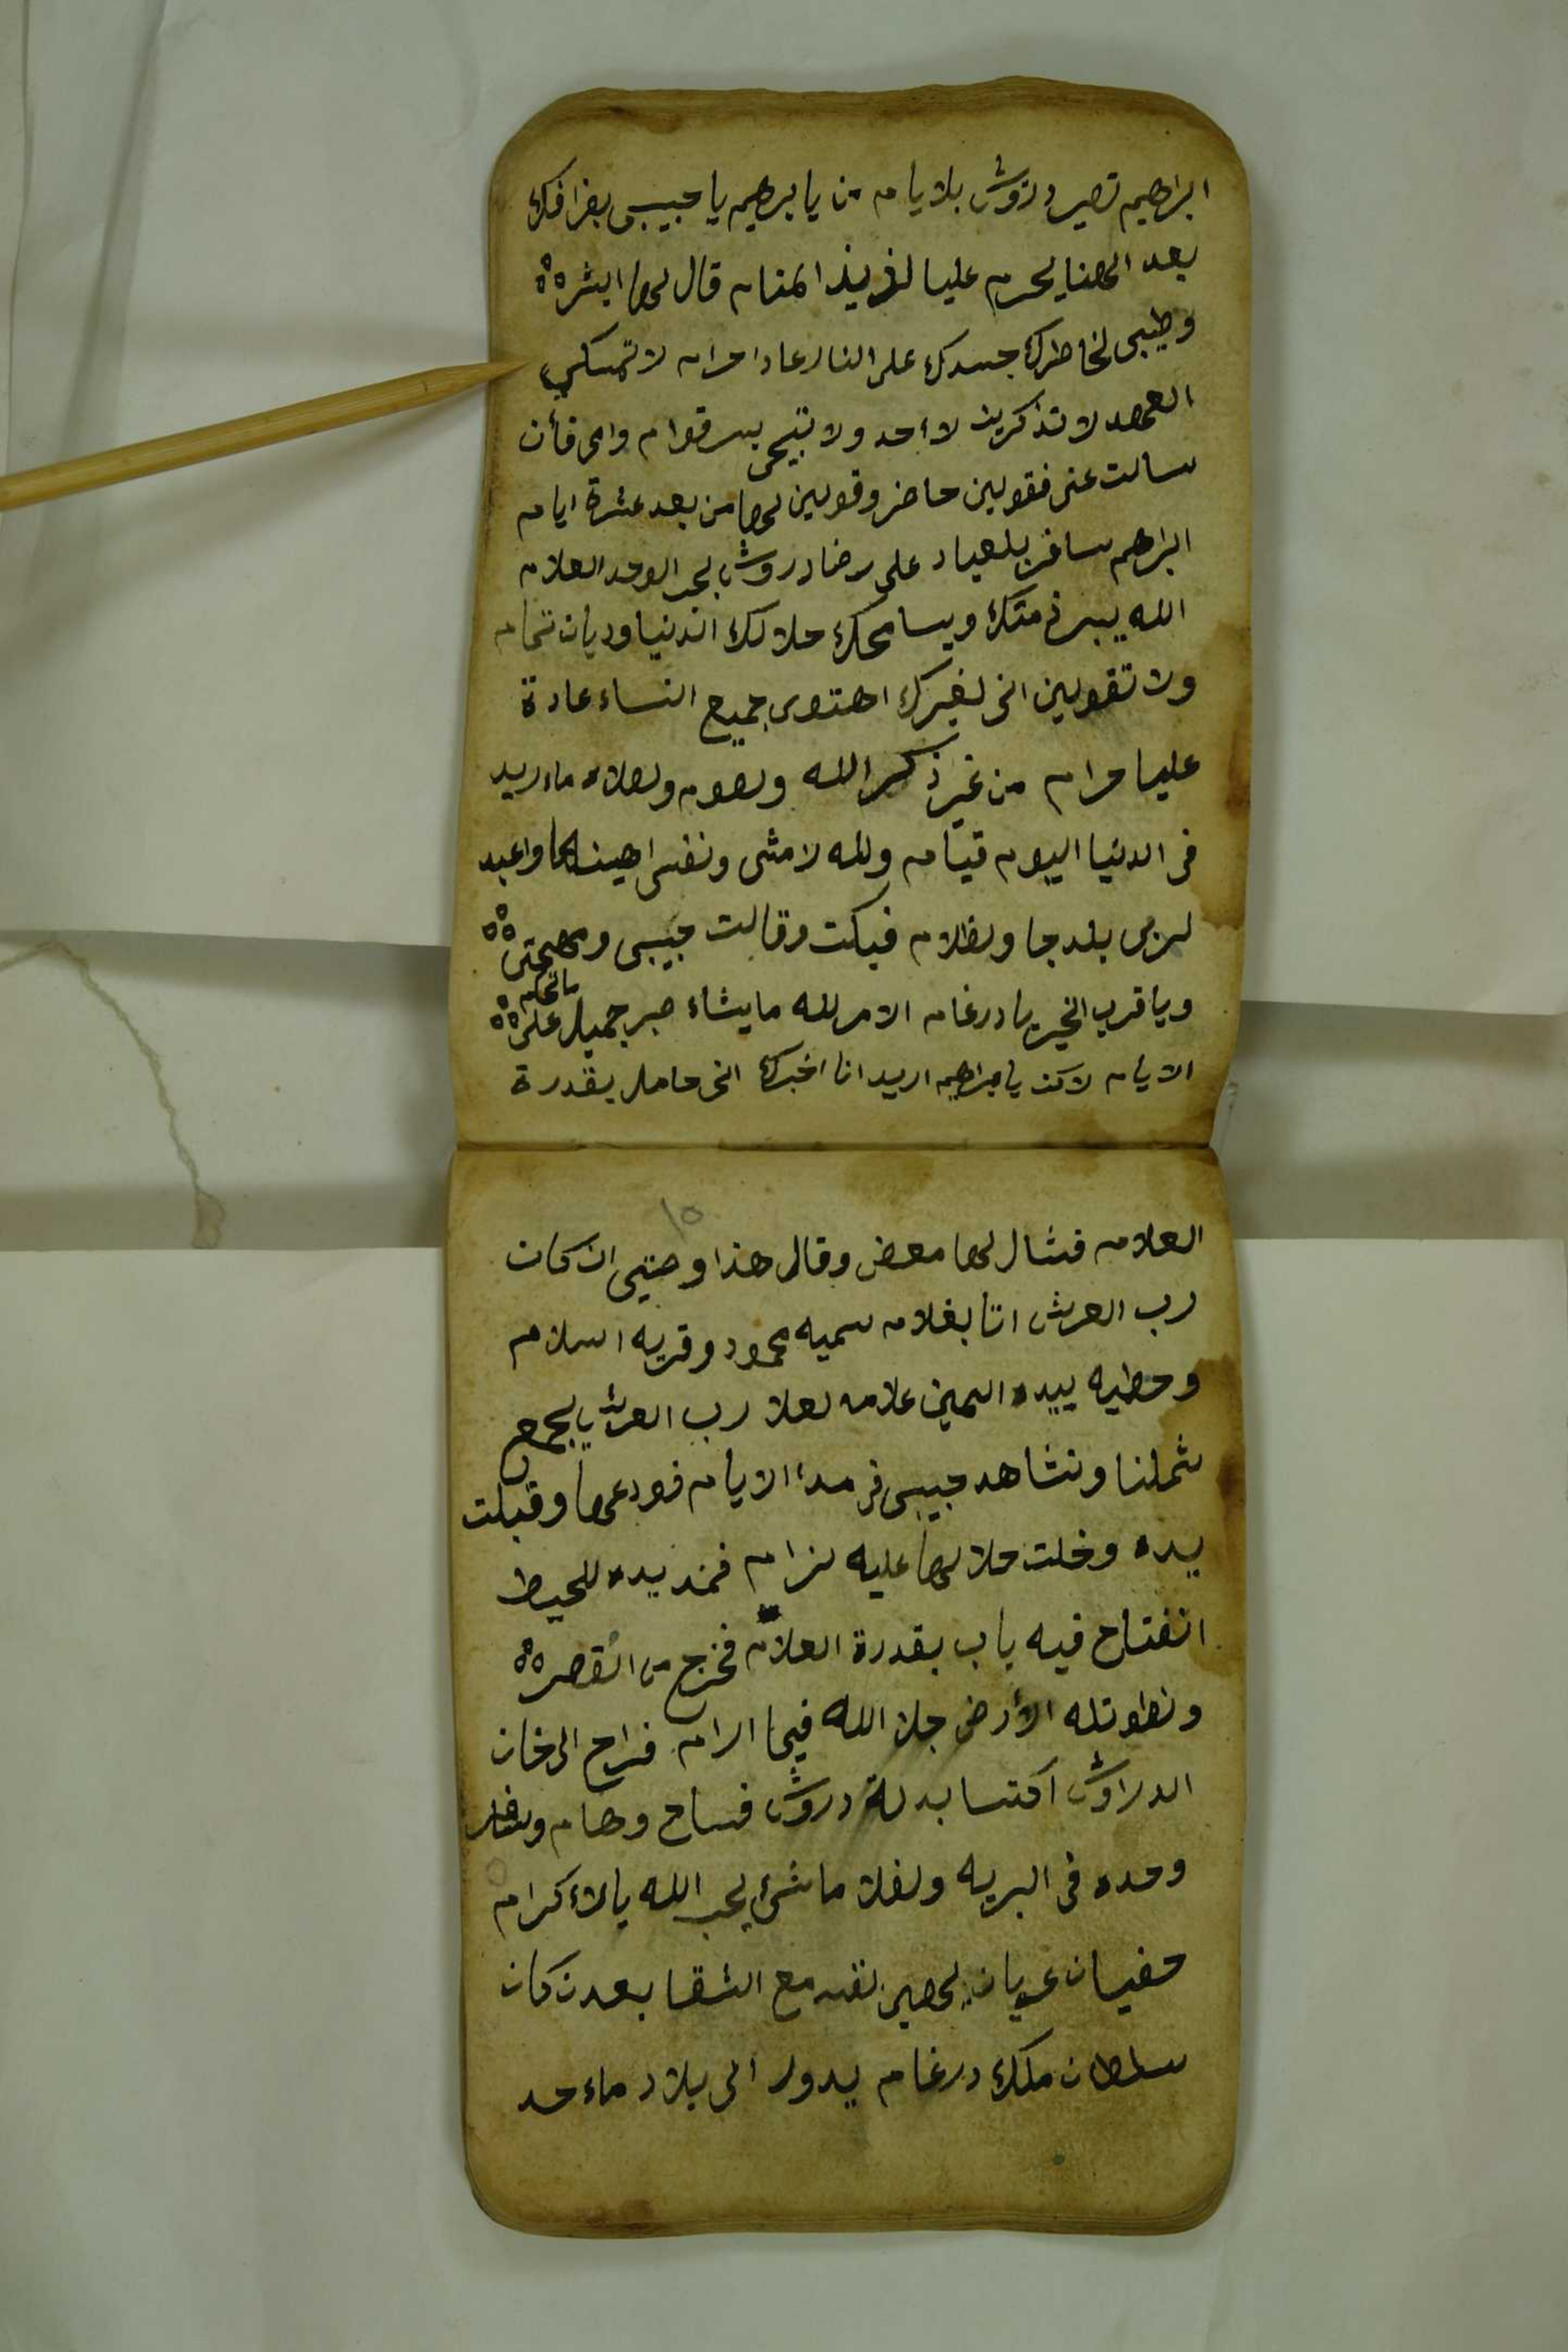 ابراهيم تصير دروش بلا يام من يا برهيم يا حبيبي بفراقك
بعد الهنا يحرم عليا لذيذ المنام قال لها ابشره
وطيبي لخاطرك جسدك على النار عادا حرام لا تمسكي
العهد لا تذكرين لا احد ولا تبيحي بسر قوام وامي فأن
سالت عني فقولين حاضر وقولين لها من بعد عشرة ايام
ابراهم سافر بلعباد على رضا دروش لحب الوحد العلام
الله يبر ذمتك ويسامحك حلالك الدنيا وديان تمام
ولا تقولين انى لغيرك احتوى جميع النساء عادة
عليا حرام من غير ذكر الله وصوم وصلاه ماء ريد
في الدنيا اليوم قيام ولله لا مشى ونفسى اهينها واعبد
لربى بلدجا وظلام فبكت وقالت حبيبى ومهجتى
ويا قرب الخير يا درغام الامر لله ما يشاء صبر جميل على
الايام لاكن يا براهيم اريد انا اخبرك انى حامل بقدرة
١٥
العلام فشال لها معض وقال هذا وصيتي ان كان
رب العرش اتا بغلام سميه محمود وقريه السلام
وحطيه بيده اليمين علامه لعلا رب العرش يجمع
شملنا ونشاهد حبيبى فى مدا الايام فودعها وقبلت
يده وخلت حلالها عليه لزام فمد يده للحيط
انفتاح فيه باب بقدرة العلام فخرج من القصر
ونطوتله الأرض جلا الله فيها الرام فراح الى خان
الدراوش اكتسا بدلة دروش فساح وهام
وحده في البريه ولفلا ماشى يحب الله يالاكرام
حفيان عريان يهين نفسه مع الشقا بعد ن كان
سلطان ملك درغام يدور الى بلاد ماء حد